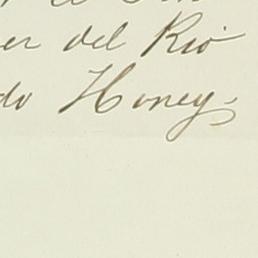 er del Rio
do Honey,